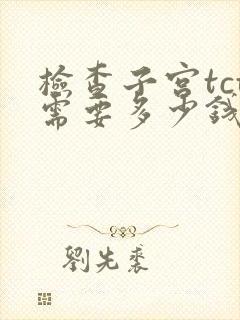 檢查子宮tct
需要多少錢
劉先裘